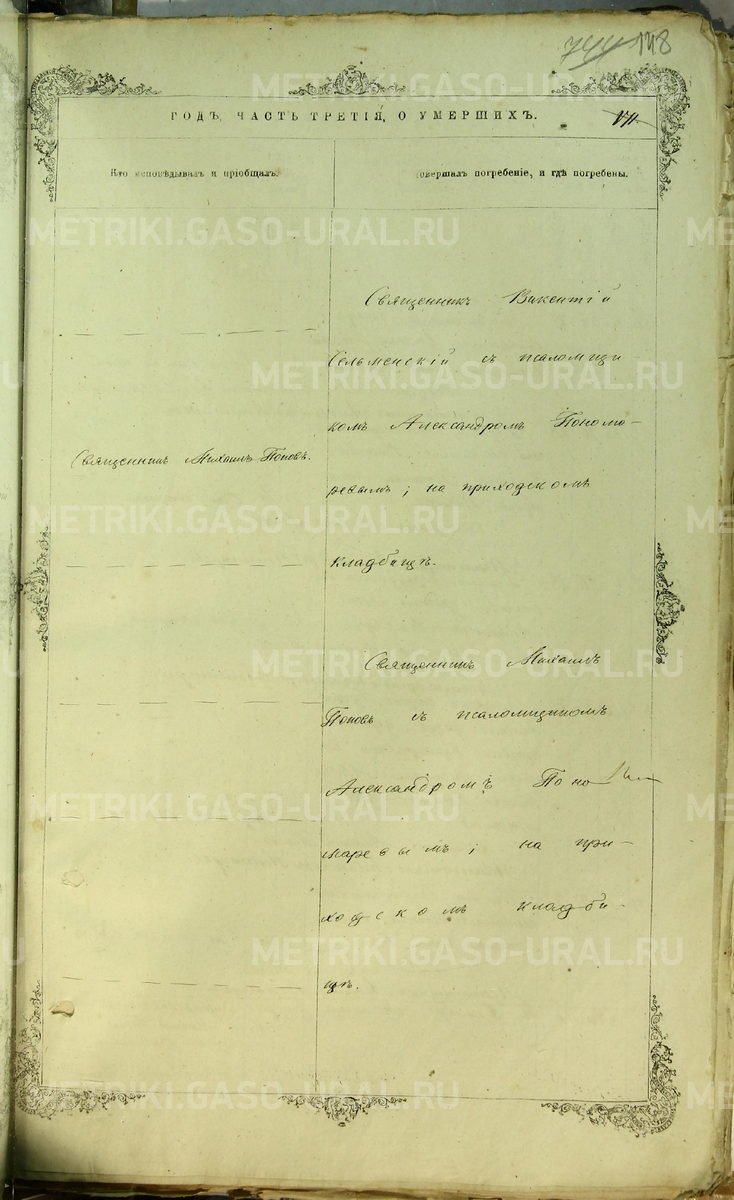 148
ГОДЪ, ЧАСТЬ ТРЕТІЯ, О УМЕРШИХЪ.
Кто исповѣдывалъ и пріобщалъ.
совершалъ погребеніе, и гдѣ погребены.
Священникъ Михаилъ Поповъ.
Священникъ Викентій
Сельменскій съ псаломщи
комъ Александромъ Понома-
ревымъ; на приходскомъ
кладбищѣ.
Священникъ Михаилъ
Поповъ съ псаломщикомъ
Александромъ Поно
маревымъ; на при-
ходскомъ кладби-
щѣ.
METRIKI.GASO-URAL.RU